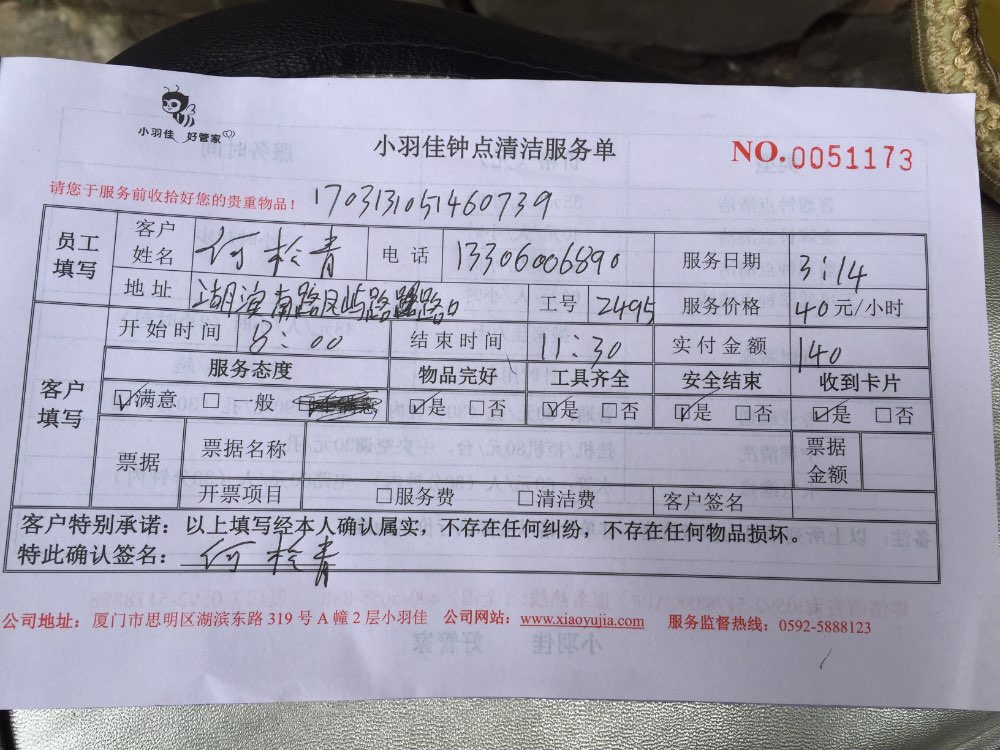 小羽佳 好管家
小羽佳钟点清洁服务单
NO.0051173
请您于服务前收拾好您的贵重物品！ 170313051460739
员工填写 客户姓名 何 青 电话 13306006890 服务日期 3:14
地址 湖滨南路凤屿路路口 工号 2495 服务价格 40元/小时
客户填写 开始时间 8:00 结束时间 11:30 实付金额 140
服务态度 物品完好 工具齐全 安全结束 收到卡片
☑满意 □一般 ☑是 □否 ☑是 □否 ☑是 □否 ☑是 □否
票据 票据名称 票据金额
开票项目 □服务费 □清洁费 客户签名
客户特别承诺：以上填写经本人确认属实，不存在任何纠纷，不存在任何物品损坏。
特此确认签名：何 青
公司地址：厦门市思明区湖滨东路 319 号 A 幢 2 层小羽佳 公司网站：www.xiaoyujia.com 服务监督热线：0592-5888123